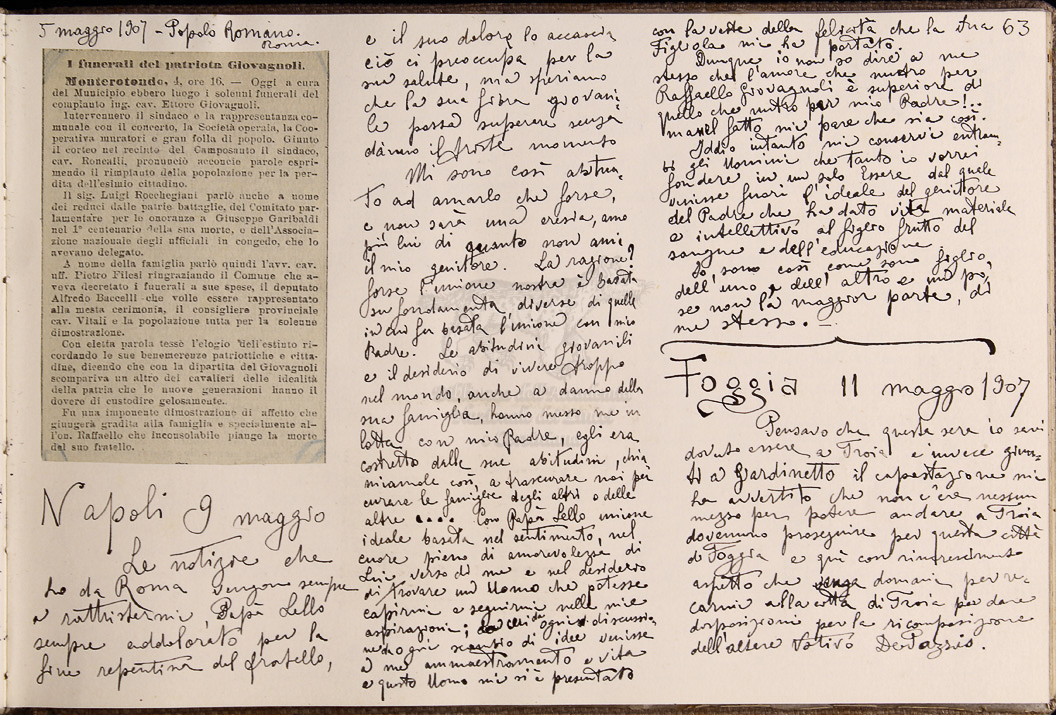 5 maggio 1907 - Popolo Romano.
Roma.
I funerali del patriota Giovagnoli.
Monterotondo, 4, ore 16. — Oggi a cura
del Municipio ebbero luogo i solenni funerali del
compianto ing. cav. Ettore Giovagnoli.
Intervennero il sindaco e la rappresentanza co-
munale con il concerto, la Società operaia, la Coo-
perativa muratori e gran folla di popolo. Giunto
il corteo nel recinto del Camposanto il sindaco,
cav. Roncalli, pronunciò acconcie parole espri-
mendo il rimpianto della popolazione per la per-
dita dell'esimio cittadino.
Il sig. Luigi Rocchegiani parlò anche a nome
dei reduci dalle patrie battaglie, del Comitato par-
lamentare per le onoranze a Giuseppe Garibaldi
nel 1° centenario della sua morte, e dell'Associa-
zione nazionale degli ufficiali in congedo, che lo
avevano delegato.
A nome della famiglia parlò quindi l'avv. cav.
uff. Pietro Filesi ringraziando il Comune che a-
veva decretato i funerali a sue spese, il deputato
Alfredo Baccelli che volle essere rappresentato
alla mesta cerimonia, il consigliere provinciale
cav. Vitali e la popolazione tutta per la solenne
dimostrazione.
Con eletta parola tessè l'elogio dell'estinto ri-
cordando le sue benemerenze patriottiche e citta-
dine, dicendo che con la dipartita del Giovagnoli
scompariva un altro dei cavalieri delle idealità
della patria che le nuove generazioni hanno il
dovere di custodire gelosamente.
Fu una imponente dimostrazione di affetto che
giungerà gradita alla famiglia e specialmente al-
l'on. Raffaello che inconsolabile piange la morte
del suo fratello.
Napoli 9 maggio
Le notizie che
ho da Roma vengono sempre
a rattristarmi, Papà Lello
sempre addolorato per la
fine repentina del fratello,
e il suo dolore lo accascia
ciò ci preoccupa per la
sua salute, ma speriamo
che la sua fibra giovani
le possa superare senza
danno il triste momento
Mi sono così abitua
to ad amarlo che forse,
e non sarà una eresia, amo
più lui di quanto non ami
il mio genitore. La ragione?
forse l'unione nostra è basata
su fondamenta diverse di quelle
in cui fu basata l'unione con mio
Padre. Le abitudini giovanili
e il desiderio di vivere troppo
nel mondo, anche a danno della
sua famiglia, hanno messo me in
lotta con mio Padre, egli era
costretto dalle sue abitudini, chia
miamole così, a trascurare noi per
curare le famiglie degli altri o delle
altre .... Con Papà Lello unione
ideale basata nel sentimento, nel
cuore pieno di amorevolezza di
Lui verso di me e nel desiderio
di trovare un Uomo che potesse
capirmi e seguirmi nelle mie
aspirazioni; ogni discussio
ne ogni scambio di idee venisse
a me ammaestramento e vita
e questo Uomo mi si è presentato
con la veste della felicità che la sua 63
Figliola mi ha portato.
Dunque io non so dire a me
stesso che l'amore che nutro per
Raffaello Giovagnoli è superiore di
quello che nutro per mio Padre!..
ma nel fatto mi pare che sia così.
Iddio intanto mi conservi entram
bi gli Uomini che tanto io vorrei
fondere in un solo Essere dal quale
venisse fuori l'ideale del genitore
del Padre che ha dato vita materiale
e intellettiva al figlio frutto del
sangue e dell'educazione
Io sono così come sono figlio,
dell'uno e dell'altro e un po',
se non la maggior parte, di
me stesso. —
Foggia 11 maggio 1907
Pensavo che questa sera io sarei
dovuto essere a Troia e invece giun-
ti a Giardinetto il capostazione mi
ha avvertito che non c'era nessun
mezzo per potere andare a Troia
dovemmo proseguire per questa città
di Foggia e qui con rincrescimento
aspetto che domani per re-
carmi alla città di Troia per dare
disposizioni per la ricomposizione
dell'altare Votivo De Pazzis.